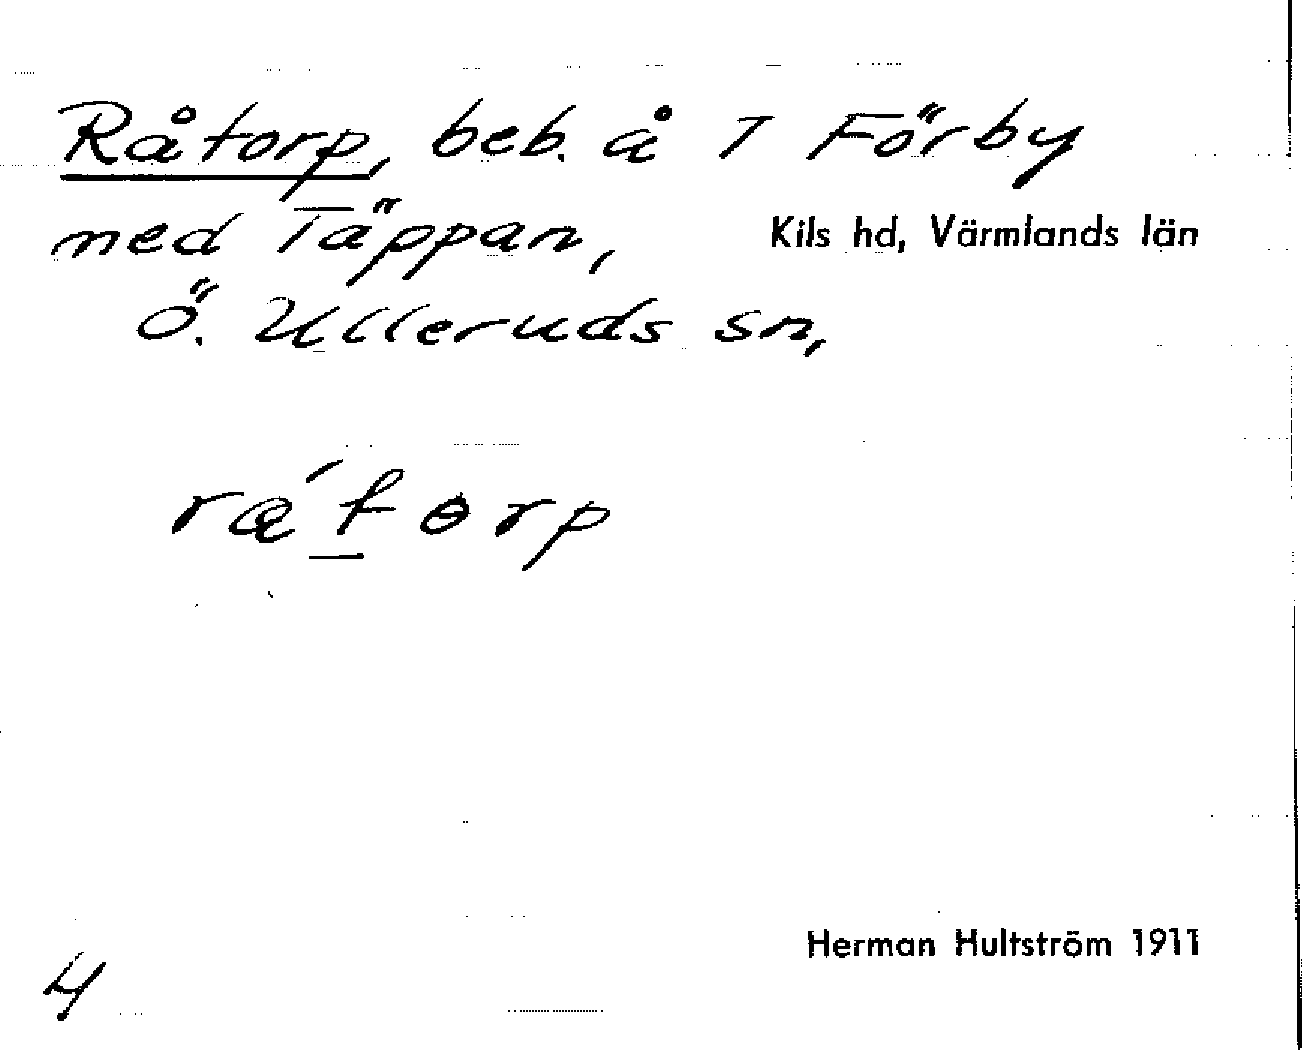 Råtorp, beb. å 1 Förby
med Täppan,
Kils hd, Värmlands län
Ö. Ulleruds sn,
Herman Hultström 1911
4